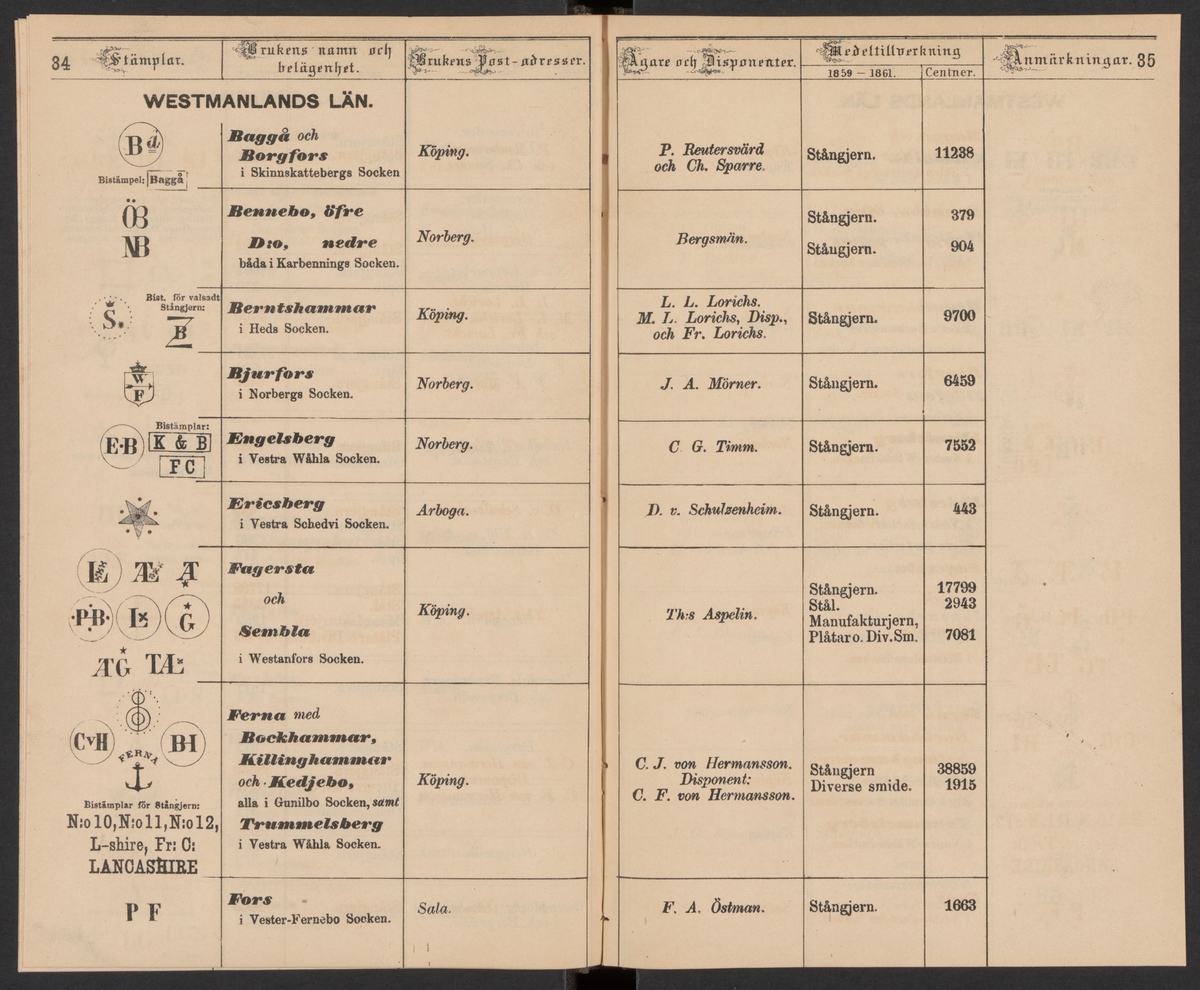 34 Stämplar.
Brukens namn och
belägenhet.
Brukens Post-adresser.
Ägare och Disponenter.
Medeltillverkning
1859 – 1861. Centner.
Anmärkningar. 35
WESTMANLANDS LÄN.
Bå
Bistämpel: Baggå
Baggå och
Borgfors
i Skinnskattebergs Socken
Köping.
P. Reutersvärd
och Ch. Sparre.
Stångjern. 11238
ÖB
NB
Bennebo, öfre
D:o, nedre
båda i Karbennings Socken.
Norberg.
Bergsmän.
Stångjern. 379
Stångjern. 904
S.
Bist. för valsadt
Stångjern:
B
Berntshammar
i Heds Socken.
Köping.
L. L. Lorichs.
M. L. Lorichs, Disp.,
och Fr. Lorichs.
Stångjern. 9700
W
F
Bjurfors
i Norbergs Socken.
Norberg.
J. A. Mörner.
Stångjern. 6459
E·B
Bistämplar:
K & B
F C
Engelsberg
i Vestra Wåhla Socken.
Norberg.
C G. Timm.
Stångjern. 7552
Ericsberg
i Vestra Schedvi Socken.
Arboga.
D. v. Schulzenheim.
Stångjern. 443
Æ
·P.B· G
ÆG TÆ
Fagersta
och
Sembla
i Westanfors Socken.
Köping.
Th:s Aspelin.
Stångjern. 17799
Stål. 2943
Manufakturjern,
Plåtar o. Div. Sm. 7081
CvH BH
FERNA
Bistämplar för Stångjern:
N:o 10, N:o 11, N:o 12,
L-shire, Fr: C:
LANCASHIRE
Ferna med
Bockhammar,
Killinghammar
och Kedjebo,
alla i Gunilbo Socken, samt
Trummelsberg
i Vestra Wåhla Socken.
Köping.
C. J. von Hermansson.
Disponent:
C. F. von Hermansson.
Stångjern 38859
Diverse smide. 1915
P F
Fors
i Vester-Fernebo Socken.
Sala.
F. A. Östman.
Stångjern. 1663